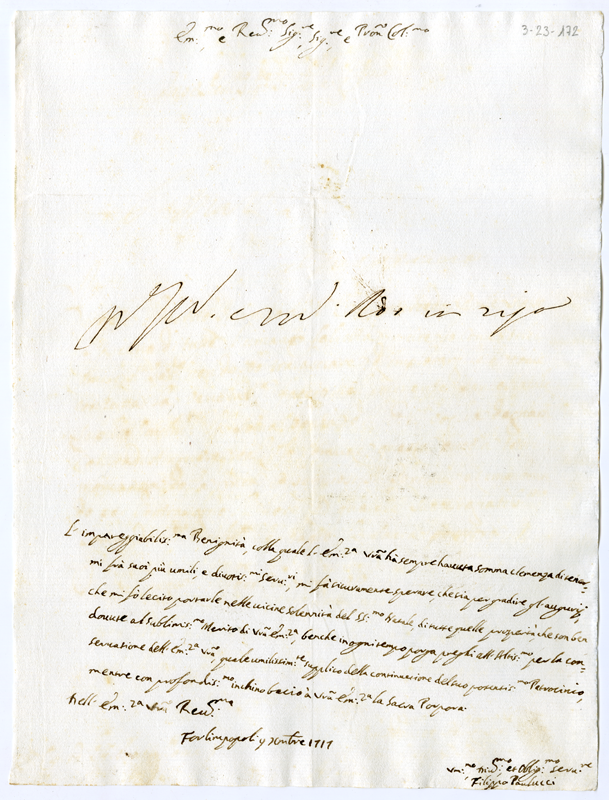 3-23-172
Em:mo e Reu:mo Sig:re, Sig:re, e Pron Col:mo
L'impareggiabilis:ma Benignità, colla quale l'Em:za Vrã hà sempre hauuta somma clemenza di tener-
mi frà suoi più umili, e diuotis:mi Serui:ri, mi fà sicuramente sperare, che sia per gradire gl'augurij,
che mi fò lecito portarle nelle uicine solennità del SS:mo Natale, di tutte quelle prosperità che son ben
douute al sublimis:mo Merito di Vrã Em:za, benche in ogni tempo porga preghi all'Altis:mo per la con-
seruatione dell'Em:za Vrã, quale umilissim:te supplico della continuatione del suo potentis:mo Patrocinio,
mentre con profondis:mo inchino bacio à Vrã Em:za la Sacra Porpora.
Dell'Em:za Vrã Reu:ma
Forlimpopoli 9 Xmbre 1711
Vmi:mo Diu:mo et Oblig:mo Seru:re
Filippo Paulucci